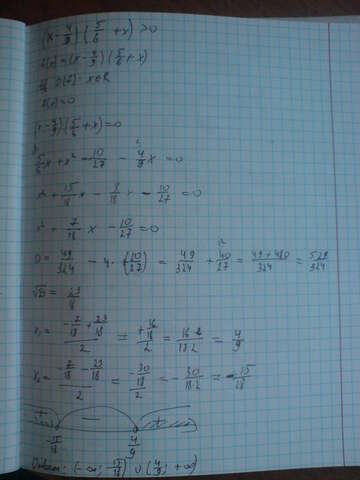 (x - 4/9)(5/6 + x) > 0
f(x) = (x - 4/9)(5/6 + x)
D(f) - x∈R
f(x) = 0
(x - 4/9)(5/6 + x) = 0
5/6 x + x² - 10/27 - 4/9 x = 0
x² + 15/18 x - 8/18 x - 10/27 = 0
x² + 7/18 x - 10/27 = 0
D = 49/324 - 4 · (10/27) = 49/324 + 40/27 = (49 + 480)/324 = 529/324
√D = 23/18
x₁ = (-7/18 + 23/18)/2 = (+16/18)/2 = 16/(18·2) = 4/9
x₂ = (-7/18 - 23/18)/2 = (-30/18)/2 = -30/(18·2) = -15/18
+ - +
-15/18 4/9
Ответ: (-∞; -15/18) ∪ (4/9; +∞)